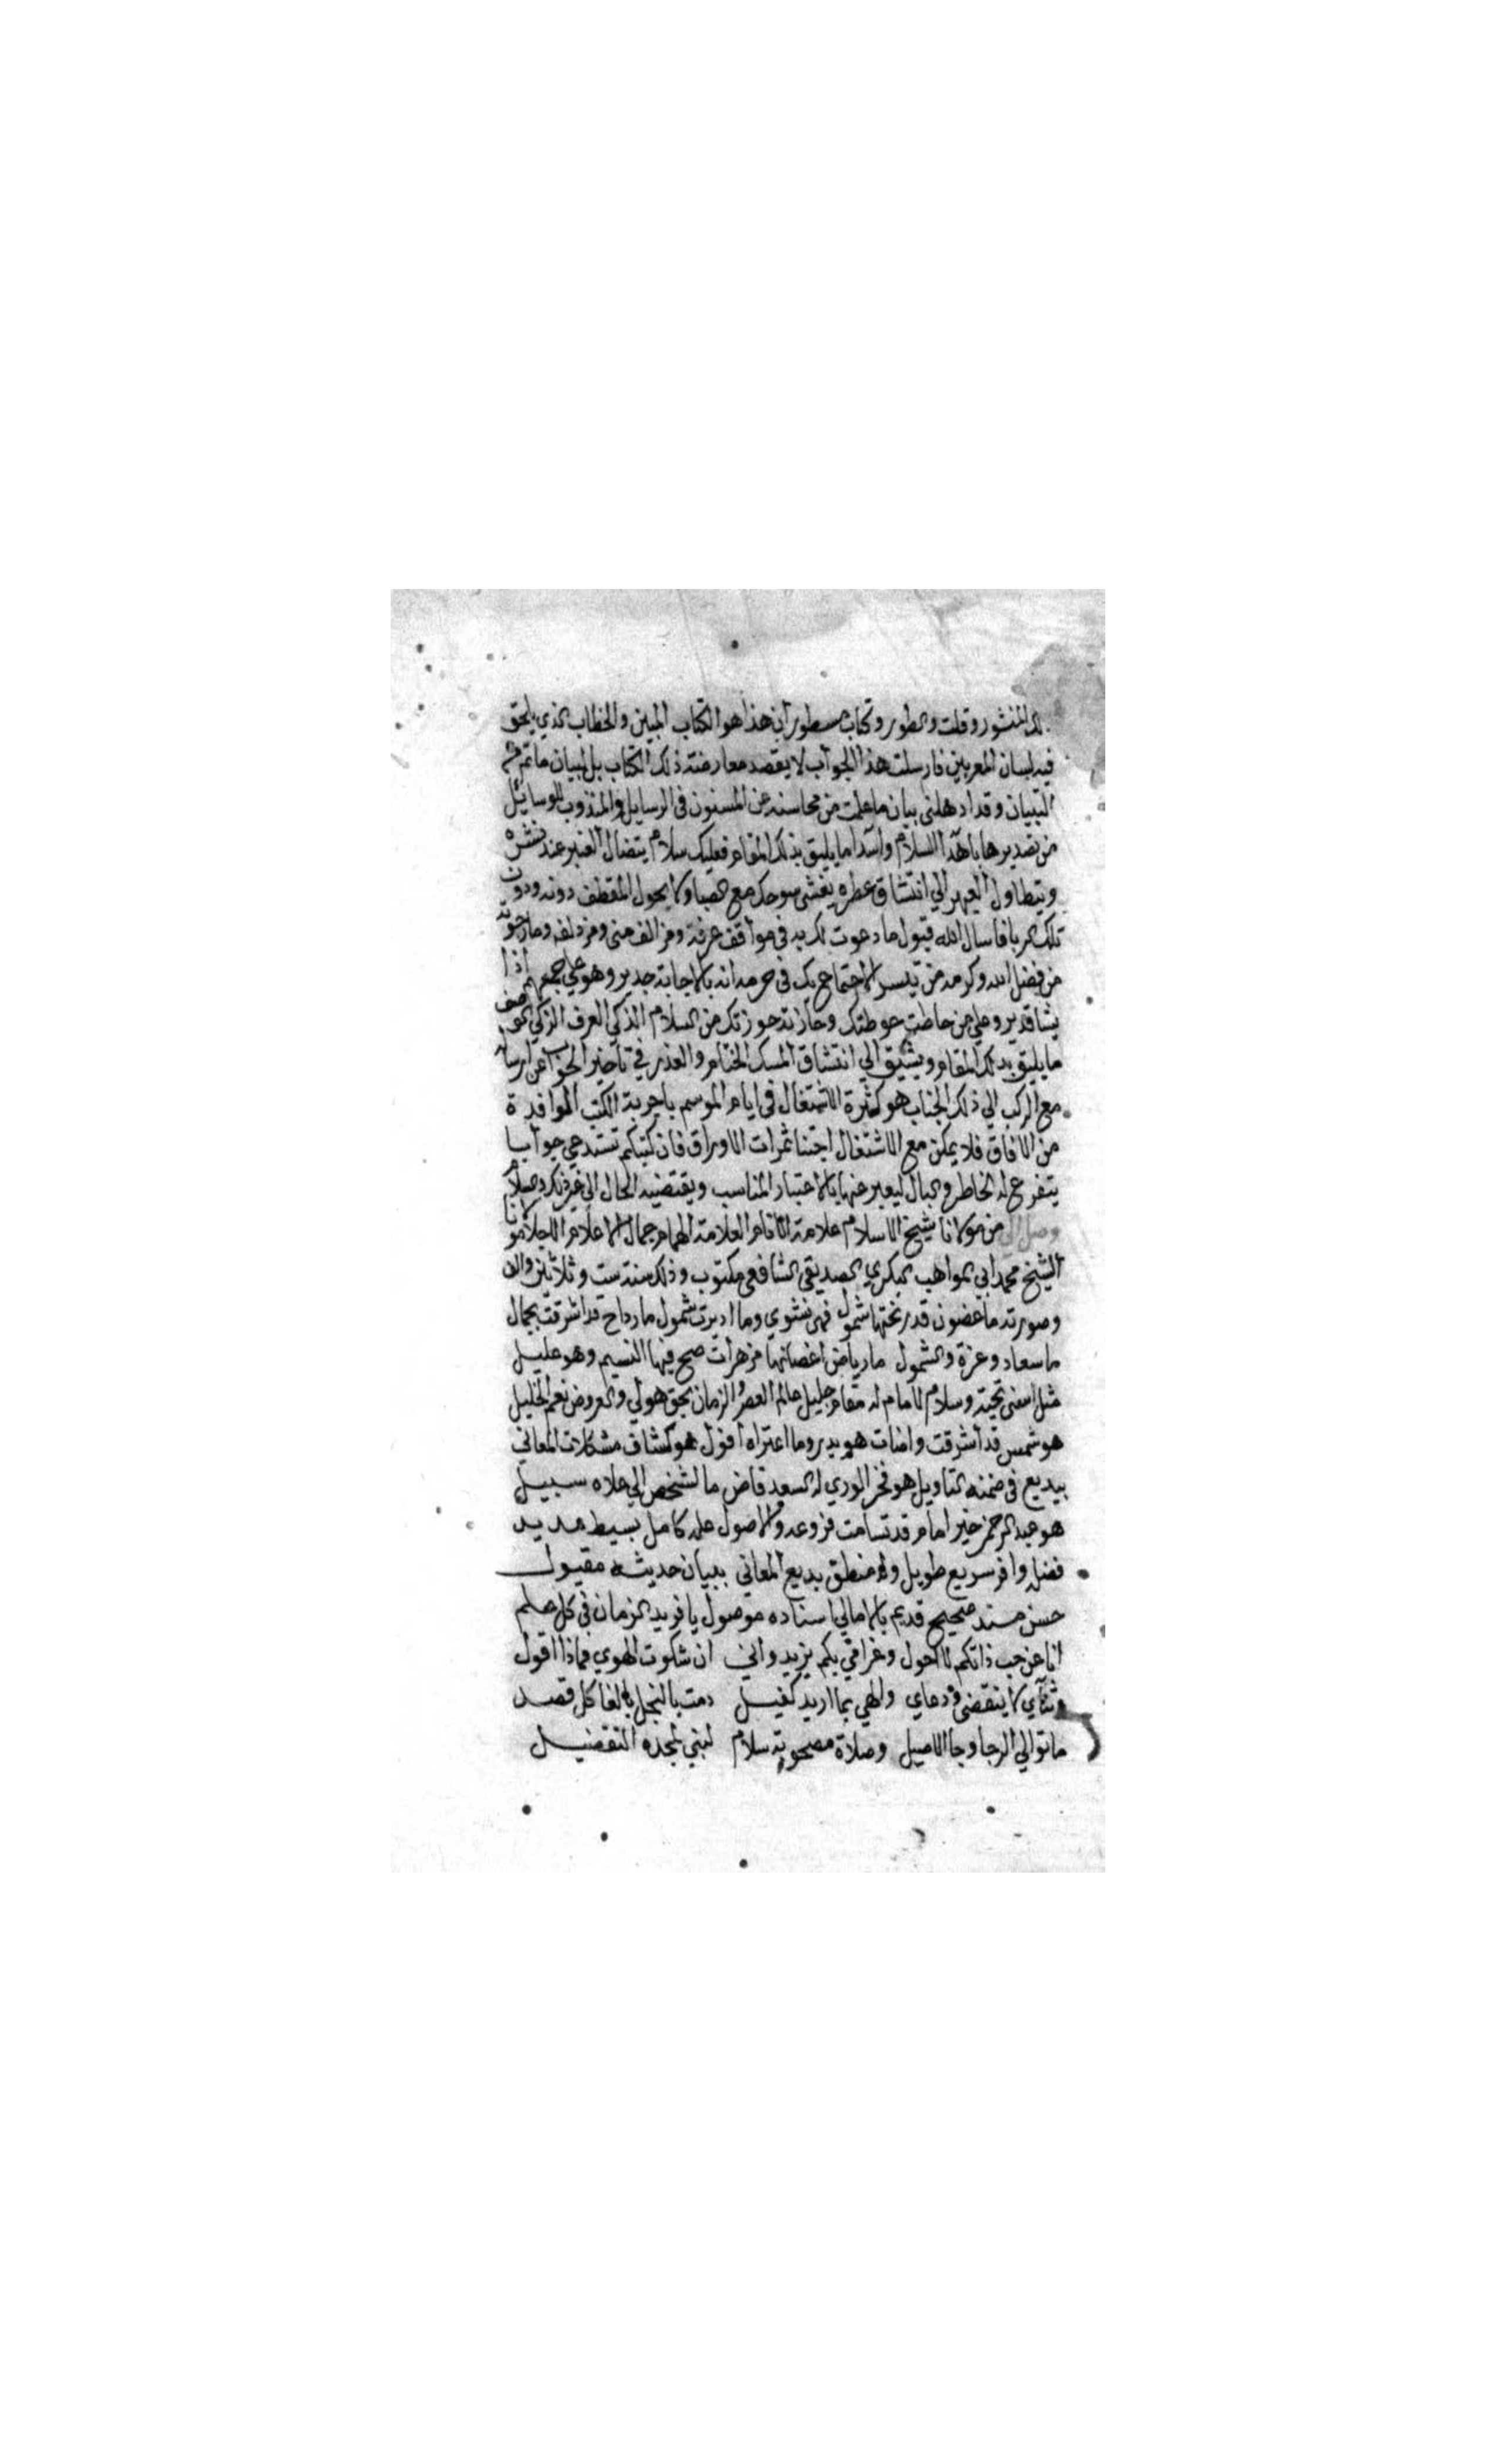 المنثور وقلت والطور وكتاب مسطور ان هذا هو الكتاب المبين والخطاب الذي يلحق
فيه لسان المعربين فارسلت هذا الجواب لا بقصد معارضة ذلك الكتاب بل لبيان ما تم
التبيان وقد ادهلني بيان ما علمت من محاسنه عن المسنون في الرسايل والمندوب للوسايل
من تصديرها باهدا السلام واسدا ما يليق بذلك المقام فعليك سلام يتضال العنبر عند نشره
ويتطاول العبهر الي انتشاق عطره يغشي سوحك مع الصبا ولا يحول المقطف دونه ودون
تلك الربا فاسال الله قبول ما دعوت لك به في مواقف عرفة ومزالف مني ومزدلفه وما رجوته
من فضل الله وكرمه من تيسير الاجتماع بك في حرمه انه بالاجابة جدير وهو علي جمعهم اذا
يشا قدير وعلي من حاطت حوطتك وحازته حوزتك من السلام الذكي العرف الزكي
ما يليق بذلك المقام ويشيق الي انتشاق المسك الختام والعذر في تاخير الجواب عن ارساله
مع الركب الي ذلك الجناب هو كثرة الاشتغال في ايام الموسم باجوبة الكتب الموافدة
من الافاق فلا يمكن مع الاشتغال اجتنا ثمرات الاوراق فان كتبكم تستدعي جوابا
يتفرع له الخاطر والبال ليعبر عنها بالاعتبار المناسب ويقتضيه الحال الي غير ذلك
وصل الي من مولانا شيخ الاسلام علامة الانام العلامة الهمام جمال الاعلام الاجلا مولانا
الشيخ محمد ابي المواهب البكري الصديقي الشافعي مكتوب وذلك سنة ست وثلاثين والف
وصورته ما غصون قد رنحتها شمول فهي نشوي وما اديرت شمول ما رداح قد اشرقت بجمال
ما سعاد وعزة والشمول ما رياض اغصانها مزهرات صح فيها النسيم وهو عليل
مثل اسني تحية وسلام لامام له مقام جليل عالم العصر والزمان بحق هولي والعروض نعم الخليل
هو شمس قد اشرقت واضات هو بدر وما اعتراه افول هو كشاف مشكلات المعاني
ببديع في ضمنه التاويل هو فخر الوري له السعد قاض ما لشخص الي علاه سبيل
هو عبد الرحمن خير امام قد تسامت فروعه والاصول علمه كامل بسيط مديد
فضله وافر سريع طويل وله منطق بديع المعاني ببيان حديثه مقبول
حسن مسند صحيح قديم بالامالي اسناده موصول يا فريد الزمان في كل علم
انا عن حب ذاتكم لا احول وغرامي بكم يزيد واني ان شكوت الهوي فماذا اقول
وثنآي لا ينقضي ودعاي والهي بما اريد كفيل دمت بالنجل بالغا كل قصد
ما توالي الرجا وجا الاصيل وصلاة مصحوبة سلام لنبي لمجده التفضيل